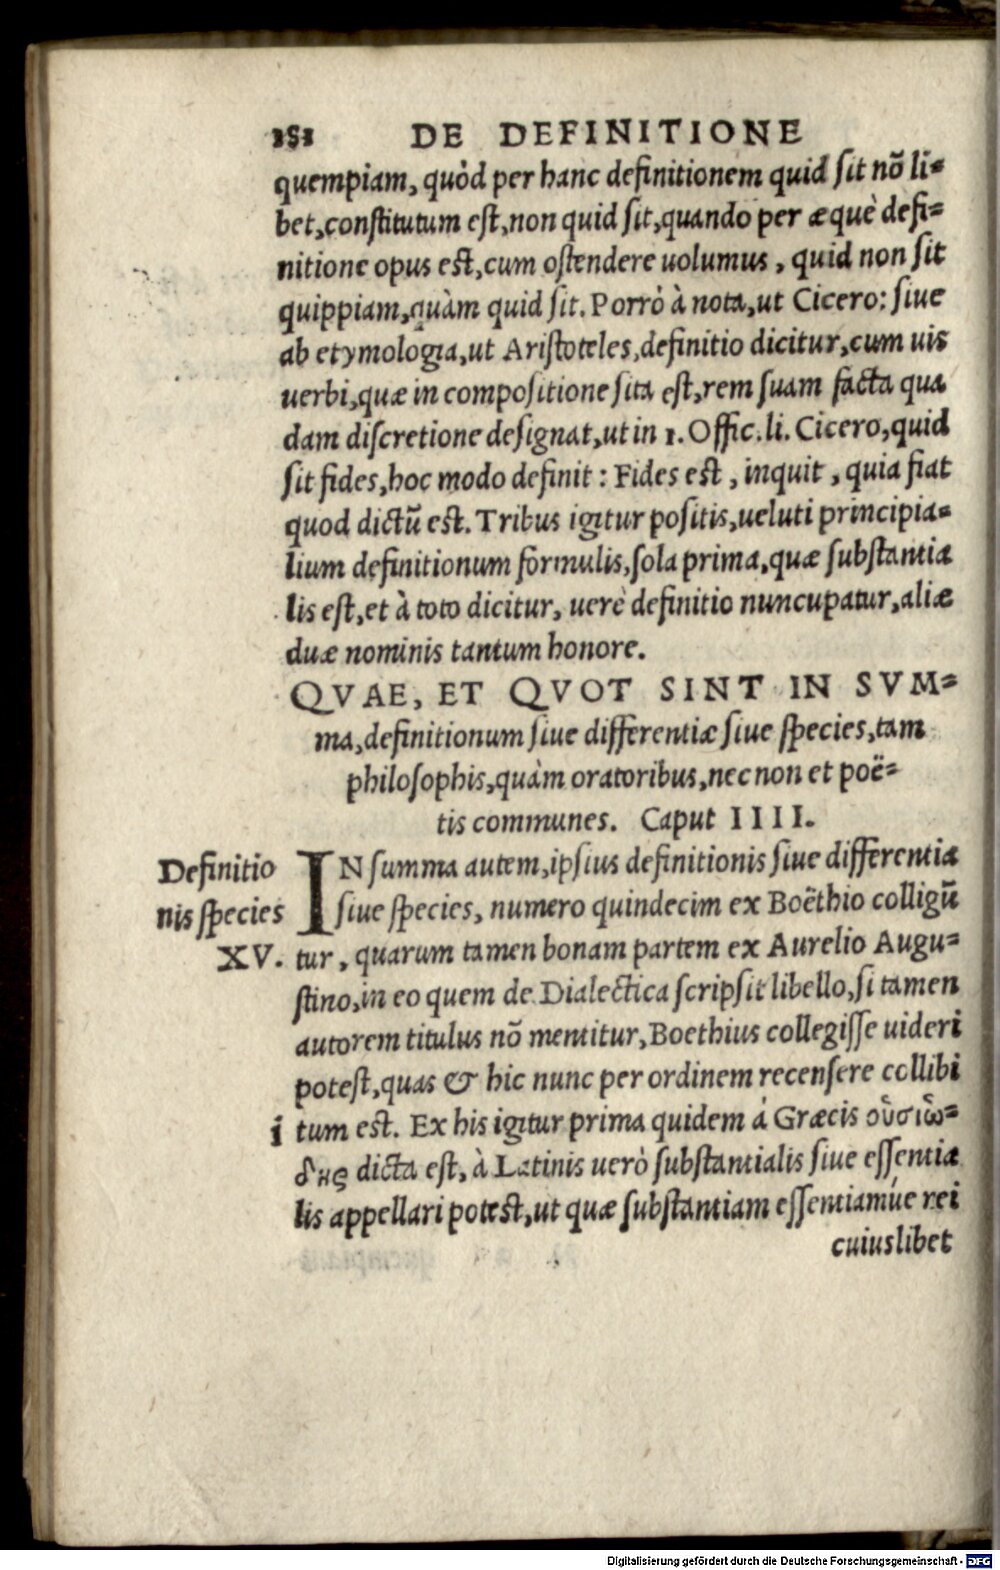 151 DE DEFINITIONE
quempiam, quòd per hanc definitionem quid sit nõ li=
bet, constitutum est, non quid sit, quando per æquè defi=
nitione opus est, cum ostendere uolumus, quid non sit
quippiam, quàm quid sit. Porrò à nota, ut Cicero: siue
ab etymologia, ut Aristoteles, definitio dicitur, cum uis
uerbi, quæ in compositione sita est, rem suam facta qua
dam discretione designat, ut in 1. Offic. li. Cicero, quid
sit fides, hoc modo definit: Fides est, inquit, quia fiat
quod dictũ est. Tribus igitur positis, ueluti principia=
lium definitionum formulis, sola prima, quæ substantia
lis est, et à toto dicitur, uerè definitio nuncupatur, aliæ
duæ nominis tantum honore.
QVAE, ET QVOT SINT IN SVM=
ma, definitionum siue differentiæ siue species, tam
philosophis, quàm oratoribus, nec non et poë=
tis communes. Caput IIII.
Definitio
nis species
XV.
IN summa autem, ipsius definitionis siue differentiæ
siue species, numero quindecim ex Boëthio colligũ
tur, quarum tamen bonam partem ex Aurelio Augu=
stino, in eo quem de Dialectica scripsit libello, si tamen
autorem titulus nõ mentitur, Boethius collegisse uideri
potest, quas & hic nunc per ordinem recensere collibi
i tum est. Ex his igitur prima quidem à Græcis οὐσιώ=
δης dicta est, à Latinis uerò substantialis siue essentia
lis appellari potest, ut quæ substantiam essentiamúe rei
cuiuslibet
Digitalisierung gefördert durch die Deutsche Forschungsgemeinschaft - DFG